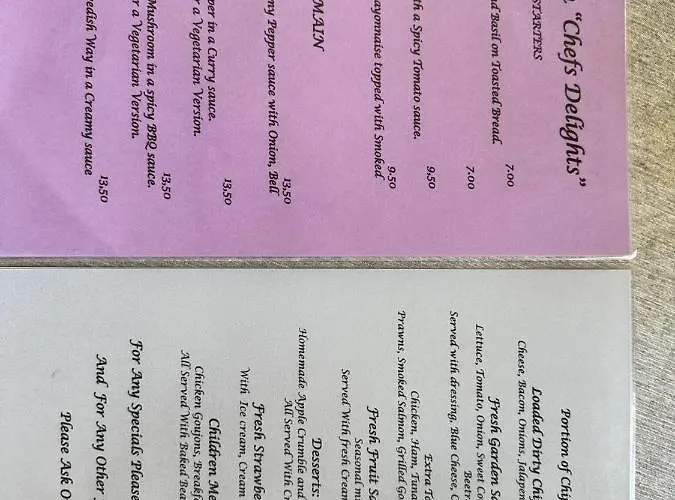 "Chefs Delights"
STARTERS
nd Basil on Toasted Bread.
7.00
7.00
th a Spicy Tomato sauce.
9.50
ayonnaise topped with Smoked
9.50
MAIN
my Pepper sauce with Onion, Bell
13.50
per in a Curry sauce.
r a Vegetarian Version.
13.50
Mushroom in a spicy BBQ sauce.
or a Vegetarian Version.
13.50
edish Way in a Creamy sauce
13.50
Portion of Chi
Loaded Dirty Ch
Cheese, Bacon, Onions, Jalapen
Fresh Garden Sa
Lettuce, Tomato, Onion, Sweet Co
Beetr
Served with dressing, Blue Cheese, C
Extra To
Chicken, Ham, Tuna
Prawns, Smoked Salmon, Grilled Go
Fresh Fruit Sa
Seasonal mi
Served With fresh Cream
Desserts:
Homemade Apple Crumble and
All Served With Cr
Fresh Strawbe
With Ice cream, Cream
Children Me
Chicken Goujons, Breakf
All Served With Baked Bea
For Any Specials Please
And For Any Other
Please Ask O